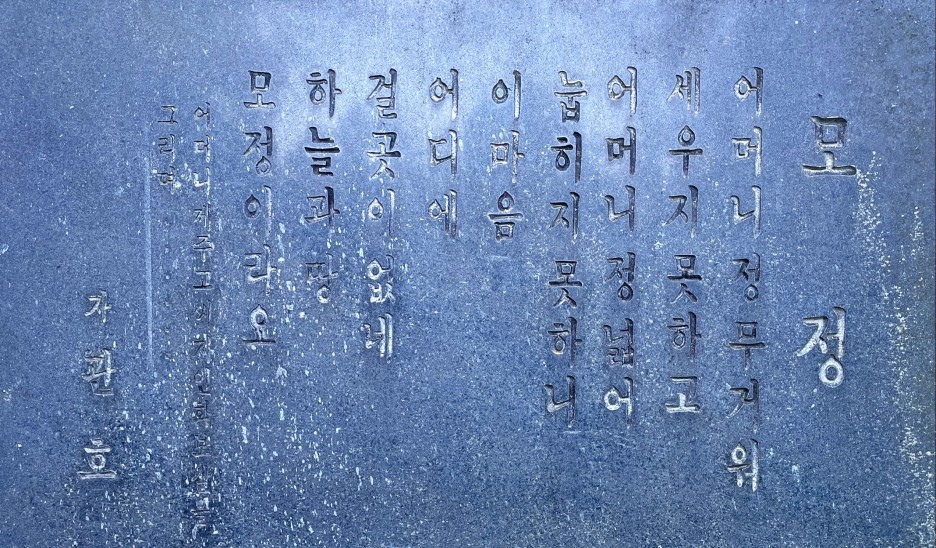 모정
어머니정무거워
세우지못하고
어머니정넓어
눕히지못하니
이마음
어디에
걸곳이없네
하늘과땅
모정이라요
그리며
판호